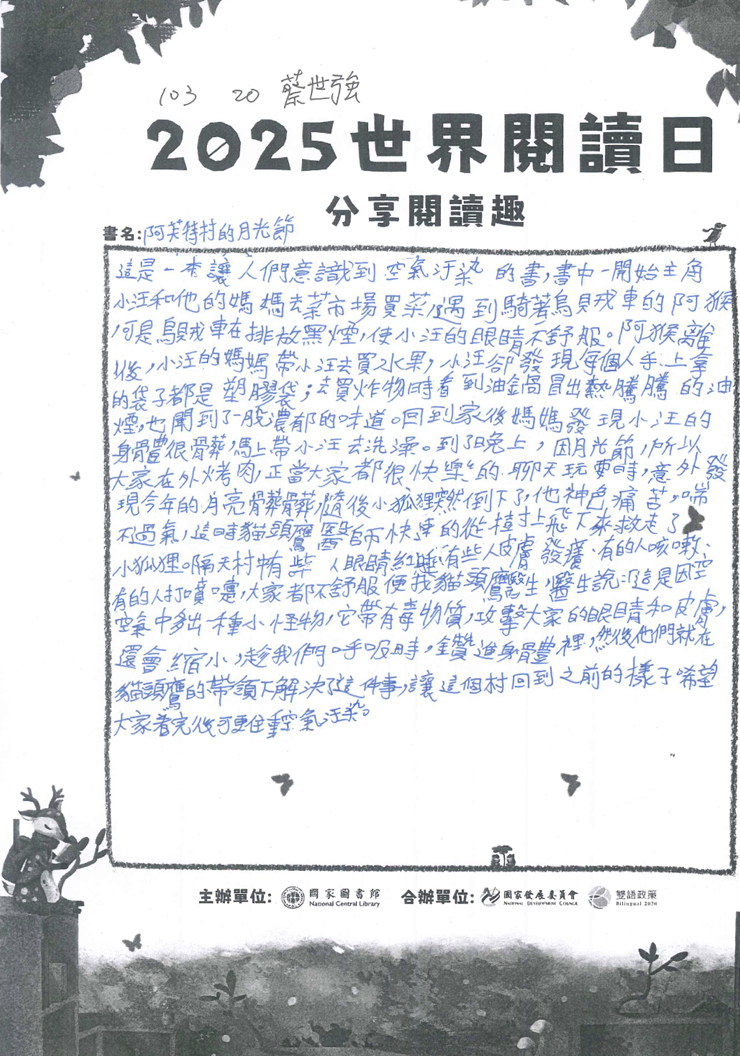 103 20 蔡世強
2025世界閱讀日
分享閱讀趣
書名:阿芙特村的月光節
這是一本讓人們意識到空氣汙染的書,書中一開始主角
小汪和他的媽媽去菜市場買菜,遇到騎著烏賊車的阿猴
,可是烏賊車在排放黑煙,使小汪的眼睛不舒服。阿猴離
後,小汪的媽媽帶小汪去買水果,小汪卻發現每個人手上拿
的袋子都是塑膠袋;去買炸物時看到油鍋冒出熱騰騰的油
煙,也聞到了一股濃郁的味道。回到家後媽媽發現小汪的
身體很髒,馬上帶小汪去洗澡。到了晚上,因月光節,所以
大家在外烤肉,正當大家都很快樂的聊天玩耍時,意外發
現今年的月亮髒髒,隨後小狐狸突然倒下了,他神色痛苦,喘
不過氣,這時貓頭鷹醫師快速的從樹上飛下來救走了
小狐狸。隔天村中有些人眼睛紅腫,有些人皮膚發癢、有的人咳嗽、
有的人打噴嚏,大家都不舒服便找貓頭鷹醫生,醫生說:這是因空
空氣中多出一種小怪物,它帶有毒物質,攻擊大家的眼睛和皮膚,
還會縮小,趁我們呼吸時,鑽進身體裡,然後他們就在
貓頭鷹的帶領下解決了這件事,讓這個村回到之前的樣子希望
大家看完後可更住重空氣汙染。
主辦單位: 國家圖書館 National Central Library 合辦單位: 國家發展委員會 National Development Council 雙語政策 Bilingual 2030